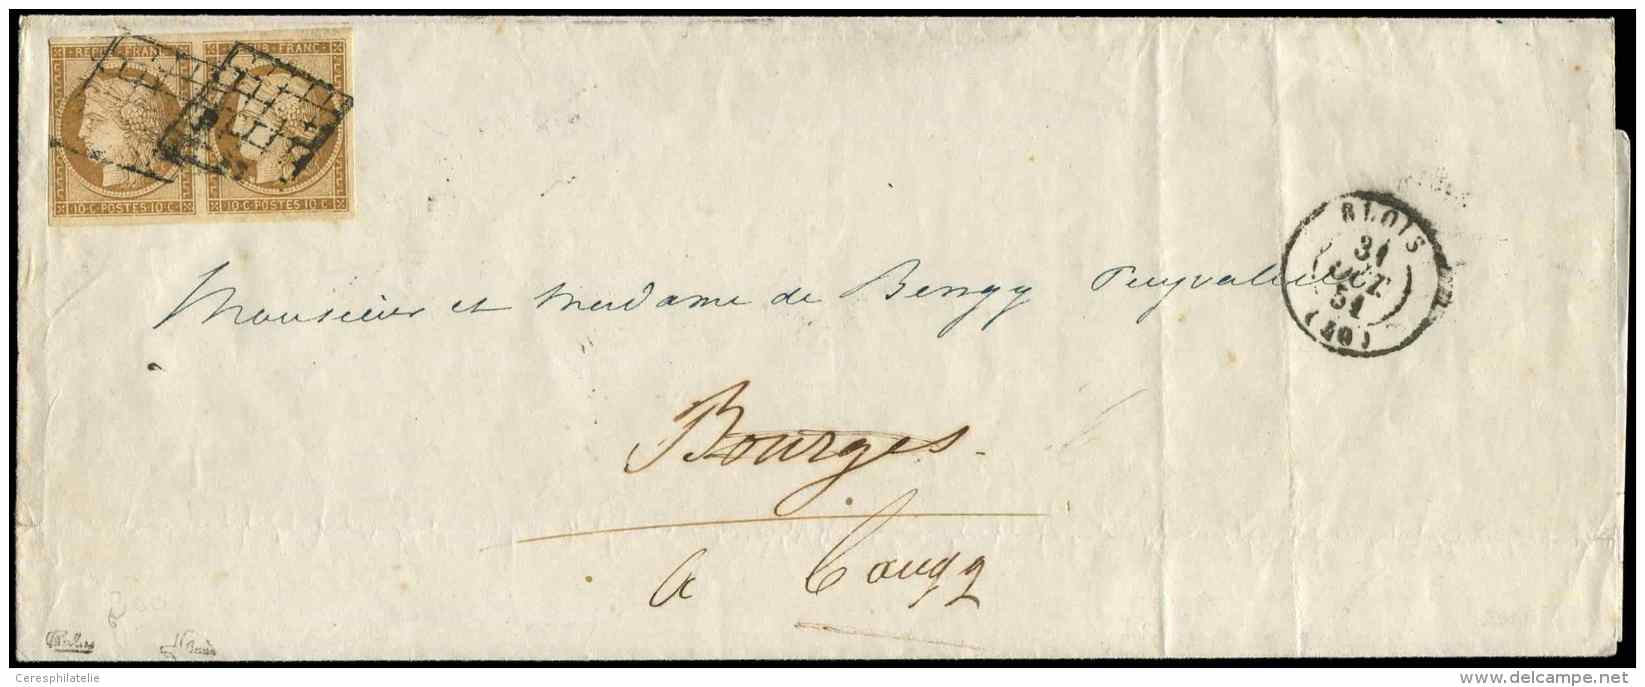 REPUB·FRANC
REPUB·FRANC
10·C·POSTES·10·C
10·C·POSTES·10·C
BLOIS
31
OCT.
51
(40)
Monsieur et Madame de Bengy Puyvallée
Bourges
a
Ceresphilatelie
www.delcampe.net